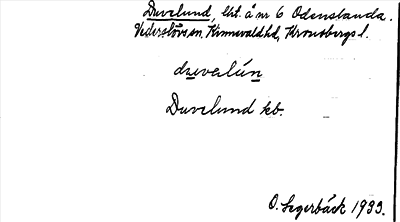 Duvelund, lht. å nr 6 Odenslanda.
Vederslövs sn, Kinnevalds hd, Kronobergs l.
dʉvalún
Duvelund kb.
O. Segerbäck 1933.